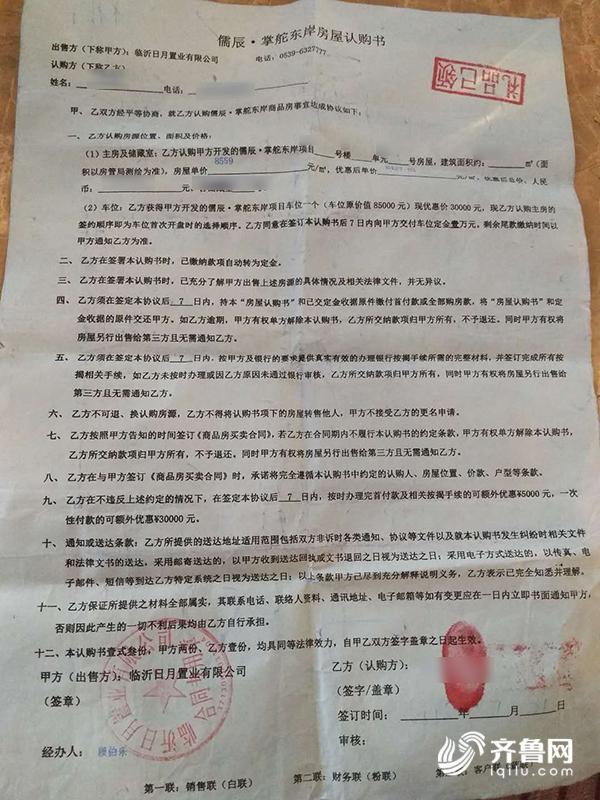 儒辰·掌舵东岸房屋认购书
出售方（下称甲方）：临沂日月置业有限公司 电话：0539-6327777
认购方（下称乙方）
姓名： 电话：
礼品已领
甲、乙双方经平等协商，就乙方认购儒辰·掌舵东岸商品房事宜达成协议如下：
一、乙方认购房源位置、面积及价格：
（1）主房及储藏室：乙方认购甲方开发的儒辰·掌舵东岸项目 号楼 单元 号房屋，建筑面积约： ㎡（面
积以房管局测绘为准），房屋单价 8559 元/㎡，优惠后单价 元/㎡，优惠后总价，人民
币： 元，
（2）车位：乙方获得甲方开发的儒辰·掌舵东岸项目车位一个（车位原价值85000元）现优惠价30000元，现乙方认购主房的
签约顺序即为车位首次开盘时的选择顺序。乙方同意在签订本认购书后7日内向甲方交付车位定金壹万元，剩余尾款缴纳时间以
甲方通知乙方为准。
二、乙方在签署本认购书时，已缴纳款项自动转为定金。
三、乙方在签署本认购书时，已充分了解甲方出售上述房源的具体情况及相关法律文件，并无异议。
四、乙方须在签定本协议后 7 日内，持本“房屋认购书”和已交定金收据原件缴付首付款或全部购房款，将“房屋认购书”和定
金收据的原件交还甲方。如乙方逾期，甲方有权单方解除本认购书，乙方所交纳款项归甲方所有，不予退还。同时甲方有权将
房屋另行出售给第三方且无需通知乙方。
五、乙方须在签定本协议后 7 日内，按甲方及银行的要求提供真实有效的办理银行按揭手续所需的完整材料，并签订完成所有按
揭相关手续，如乙方未按时办理或因乙方原因未通过银行审核，乙方所交纳款项归甲方所有，同时甲方有权将房屋另行出售给
第三方且无需通知乙方。
六、乙方不可退、换认购房源，乙方不得将认购书项下的房屋转售他人，甲方不接受乙方的更名申请。
七、乙方按照甲方告知的时间签订《商品房买卖合同》，若乙方在合同期内不履行本认购书的约定条款，甲方有权单方解除本认购书，
乙方所交纳款项归甲方所有，不予退还。同时甲方有权将房屋另行出售给第三方且无需通知乙方。
八、乙方在与甲方签订《商品房买卖合同》时，承诺将完全遵循本认购书中约定的认购人、房屋位置、价款、户型等条款。
九、乙方在不违反上述约定的情况下，在签定本协议后 7 日内，按时办理完首付款及相关按揭手续的可额外优惠¥5000元，一次
性付款的可额外优惠¥30000元。
十、通知或送达条款：乙方所提供的送达地址适用范围包括双方非诉时各类通知、协议等文件以及就本认购书发生纠纷时相关文件
和法律文书的送达，采用邮寄送达的，以甲方收到送达回执或文书退回之日视为送达之日；采用电子方式送达的，以传真、电
子邮件、短信等到达乙方特定系统之日视为送达之日；以上条款甲方已尽到充分解释说明义务，乙方表示已完全知悉并理解。
十一、乙方保证所提供之材料全部属实，其联系电话、联络人资料、通讯地址、电子邮箱等如有变更应在一日内立即书面通知甲方，
否则因此产生的一切不利后果均由乙方自行承担。
十二、本认购书壹式叁份，甲方两份、乙方壹份，均具同等法律效力，自甲乙双方签字盖章之日起生效。
甲方（出售方）：临沂日月置业有限公司 乙方（认购方）：
（签章） （签字/盖章）
临沂日月置业有限公司
合同专用章
签订时间： 年 月 日
经办人： 顾伯乐 审核：
第一联：销售联（白联） 第二联：财务联（粉联） 客户联
齐鲁网
iqilu.com